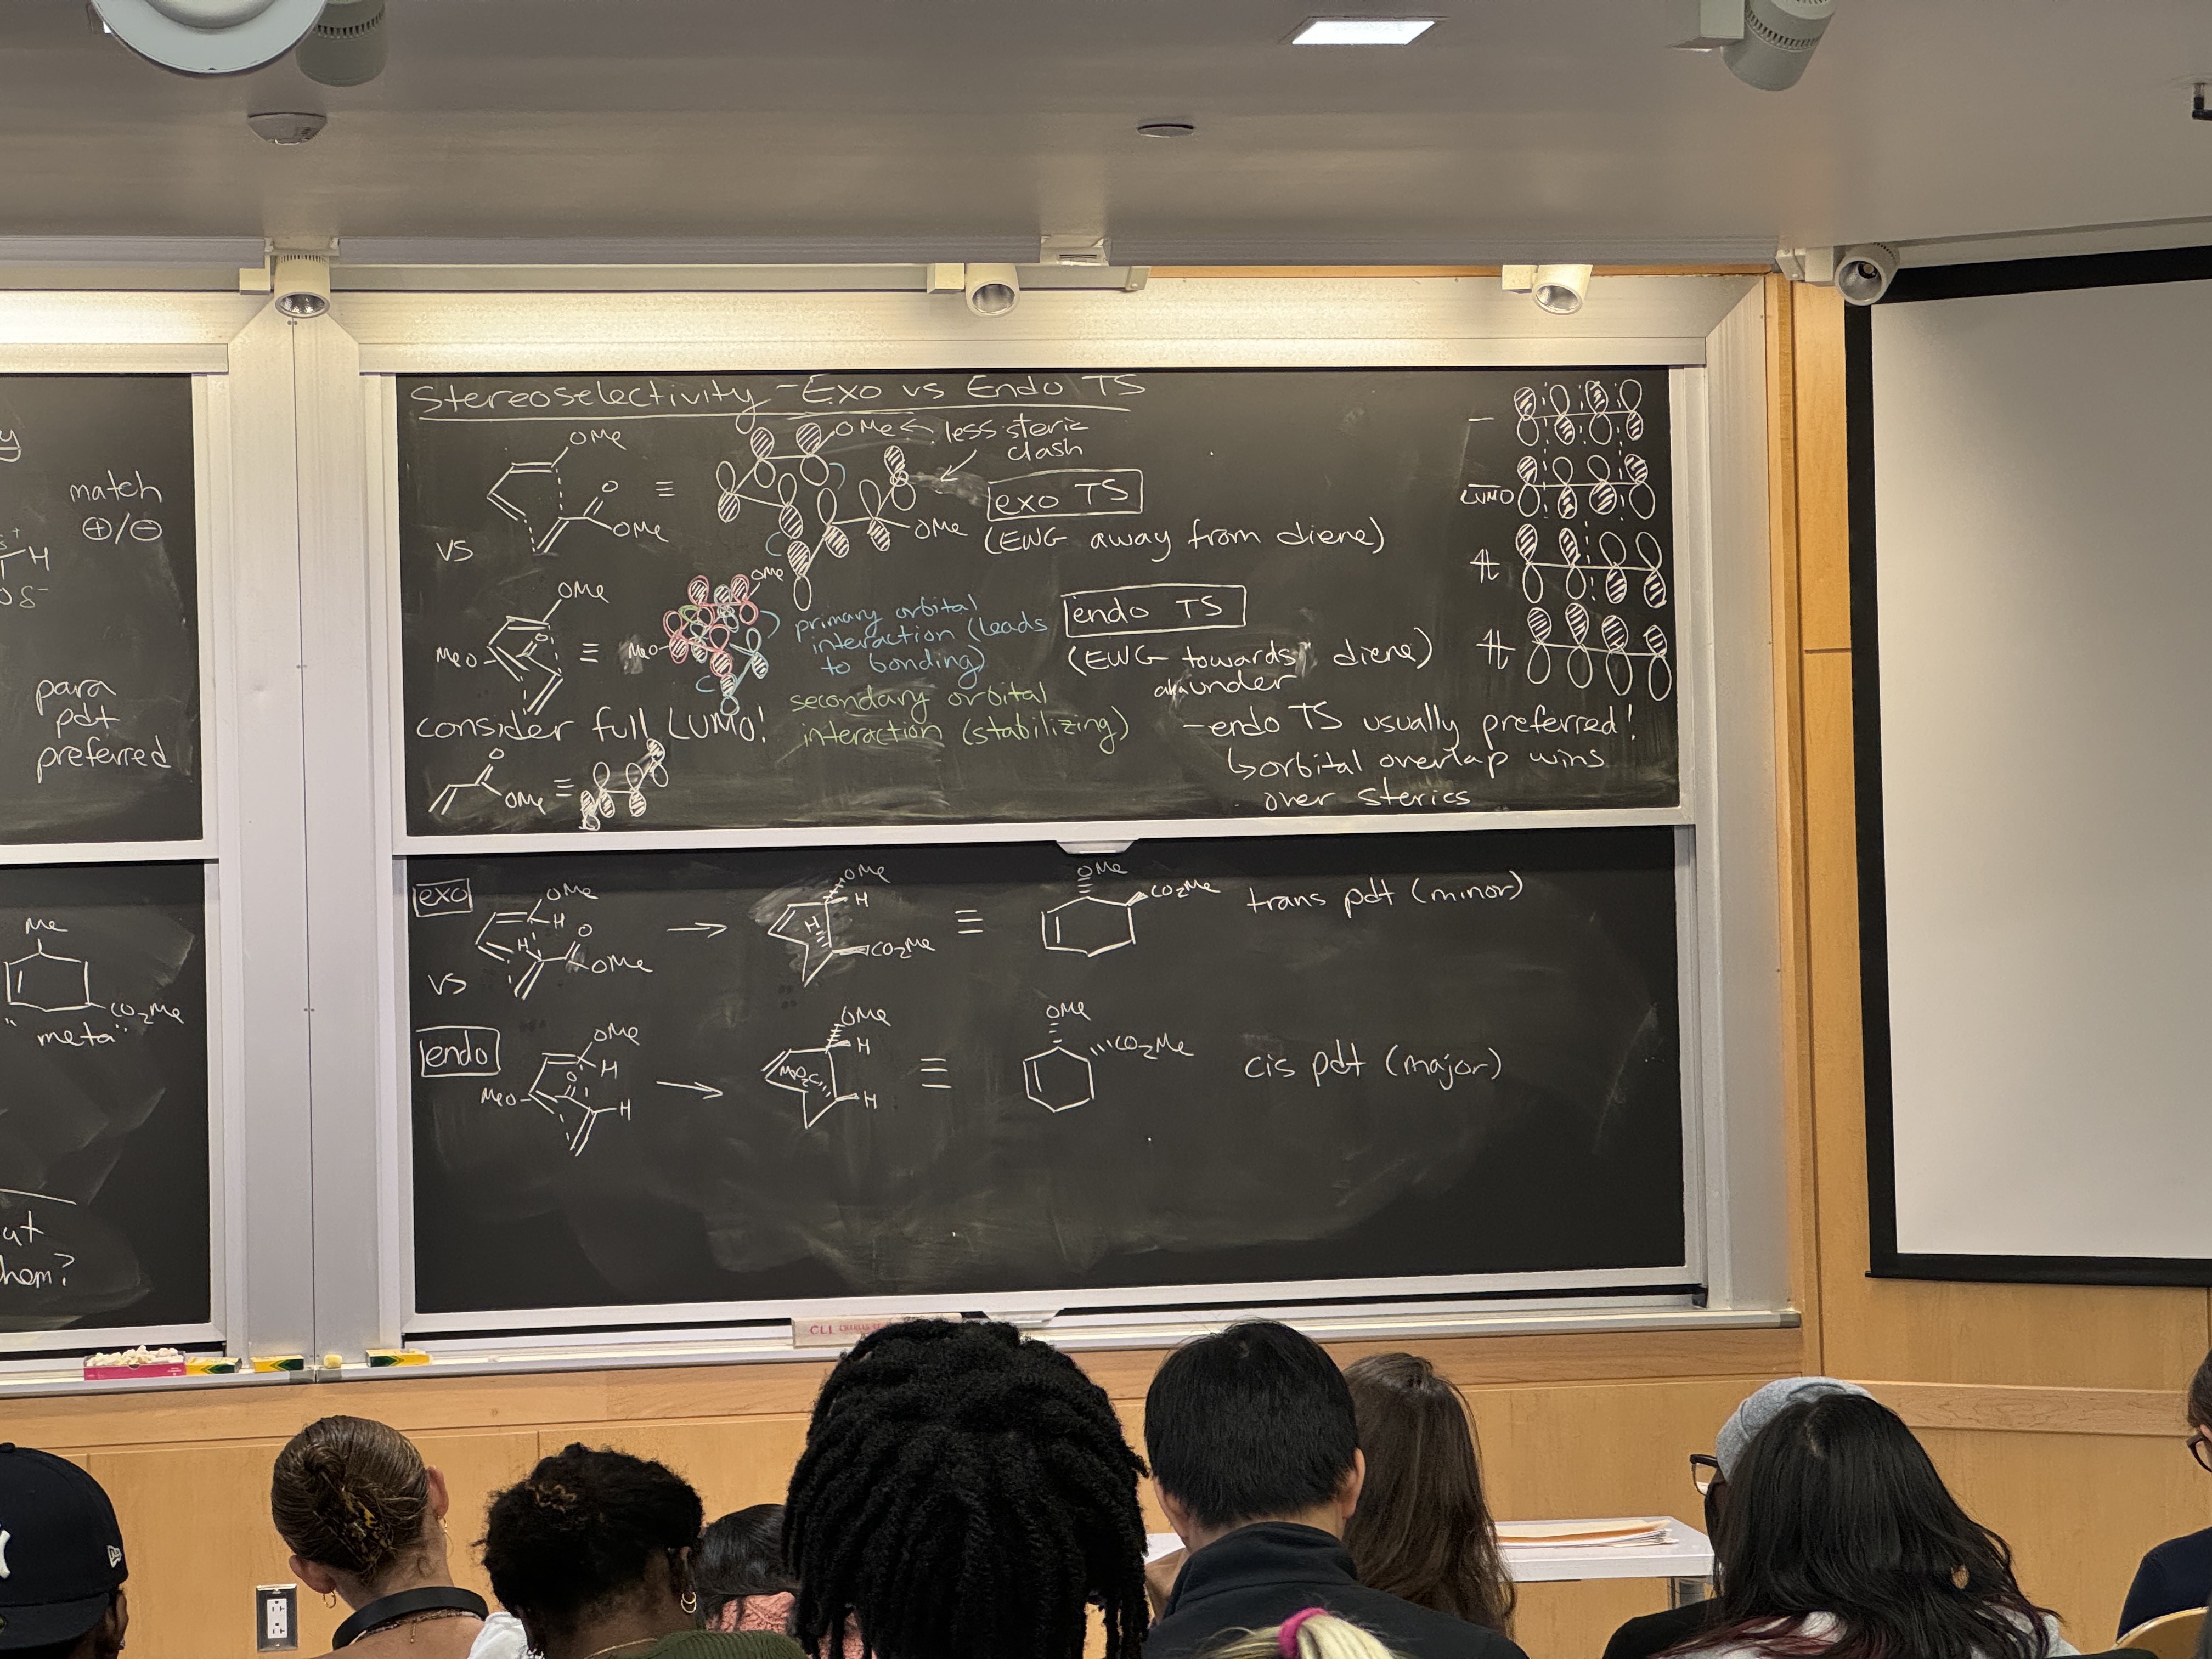 match
⊕/⊖
H
δ-
para
pdt
preferred
Me
CO2Me
"meta"
Stereoselectivity - Exo vs Endo TS
OMe
O
OMe
vs
≡
OMe ← less steric
clash
OMe
exo TS
(EWG away from diene)
OMe
O
MeO
≡
OMe
MeO
primary orbital
interaction (leads
to bonding)
secondary orbital
interaction (stabilizing)
endo TS
(EWG "towards" diene)
under
- endo TS usually preferred!
↳ orbital overlap wins
over sterics
LUMO
consider full LUMO!
O
OMe
≡
exo
OMe
H
H
O
OMe
→
OMe
H
H
CO2Me
≡
OMe
CO2Me
trans pdt (minor)
vs
endo
OMe
H
O
MeO
H
→
OMe
H
MeO2C
H
≡
OMe
CO2Me
cis pdt (major)